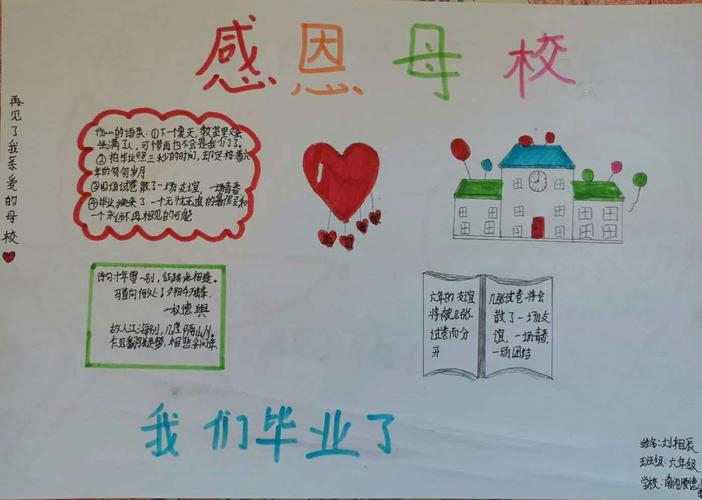 感恩母校
再见了我亲爱的母校
伤心的语录:①下一个夏天,教室里又会
坐满了人,可惜再也不会是我们了。
②拍毕业照三秒的时间,却定格着六
年的匆匆岁月
试卷散了一场友谊,一场青春
④毕业换来了一个无忧无虑的暑假和
一个永远不再相见的可能
诗句十年曾一别,征路此相逢。
马首向何处?夕阳千万峰。
—权德舆
故人江海别,几度隔山川。
乍见翻疑梦,相悲各问年。
六年的友谊
将被几张
试卷而分
开
几张试卷将会
散了一场友
谊,一场青春,
一场团结
我们毕业了
姓名:刘相辰
班级:六年级
学校:南阳顺德